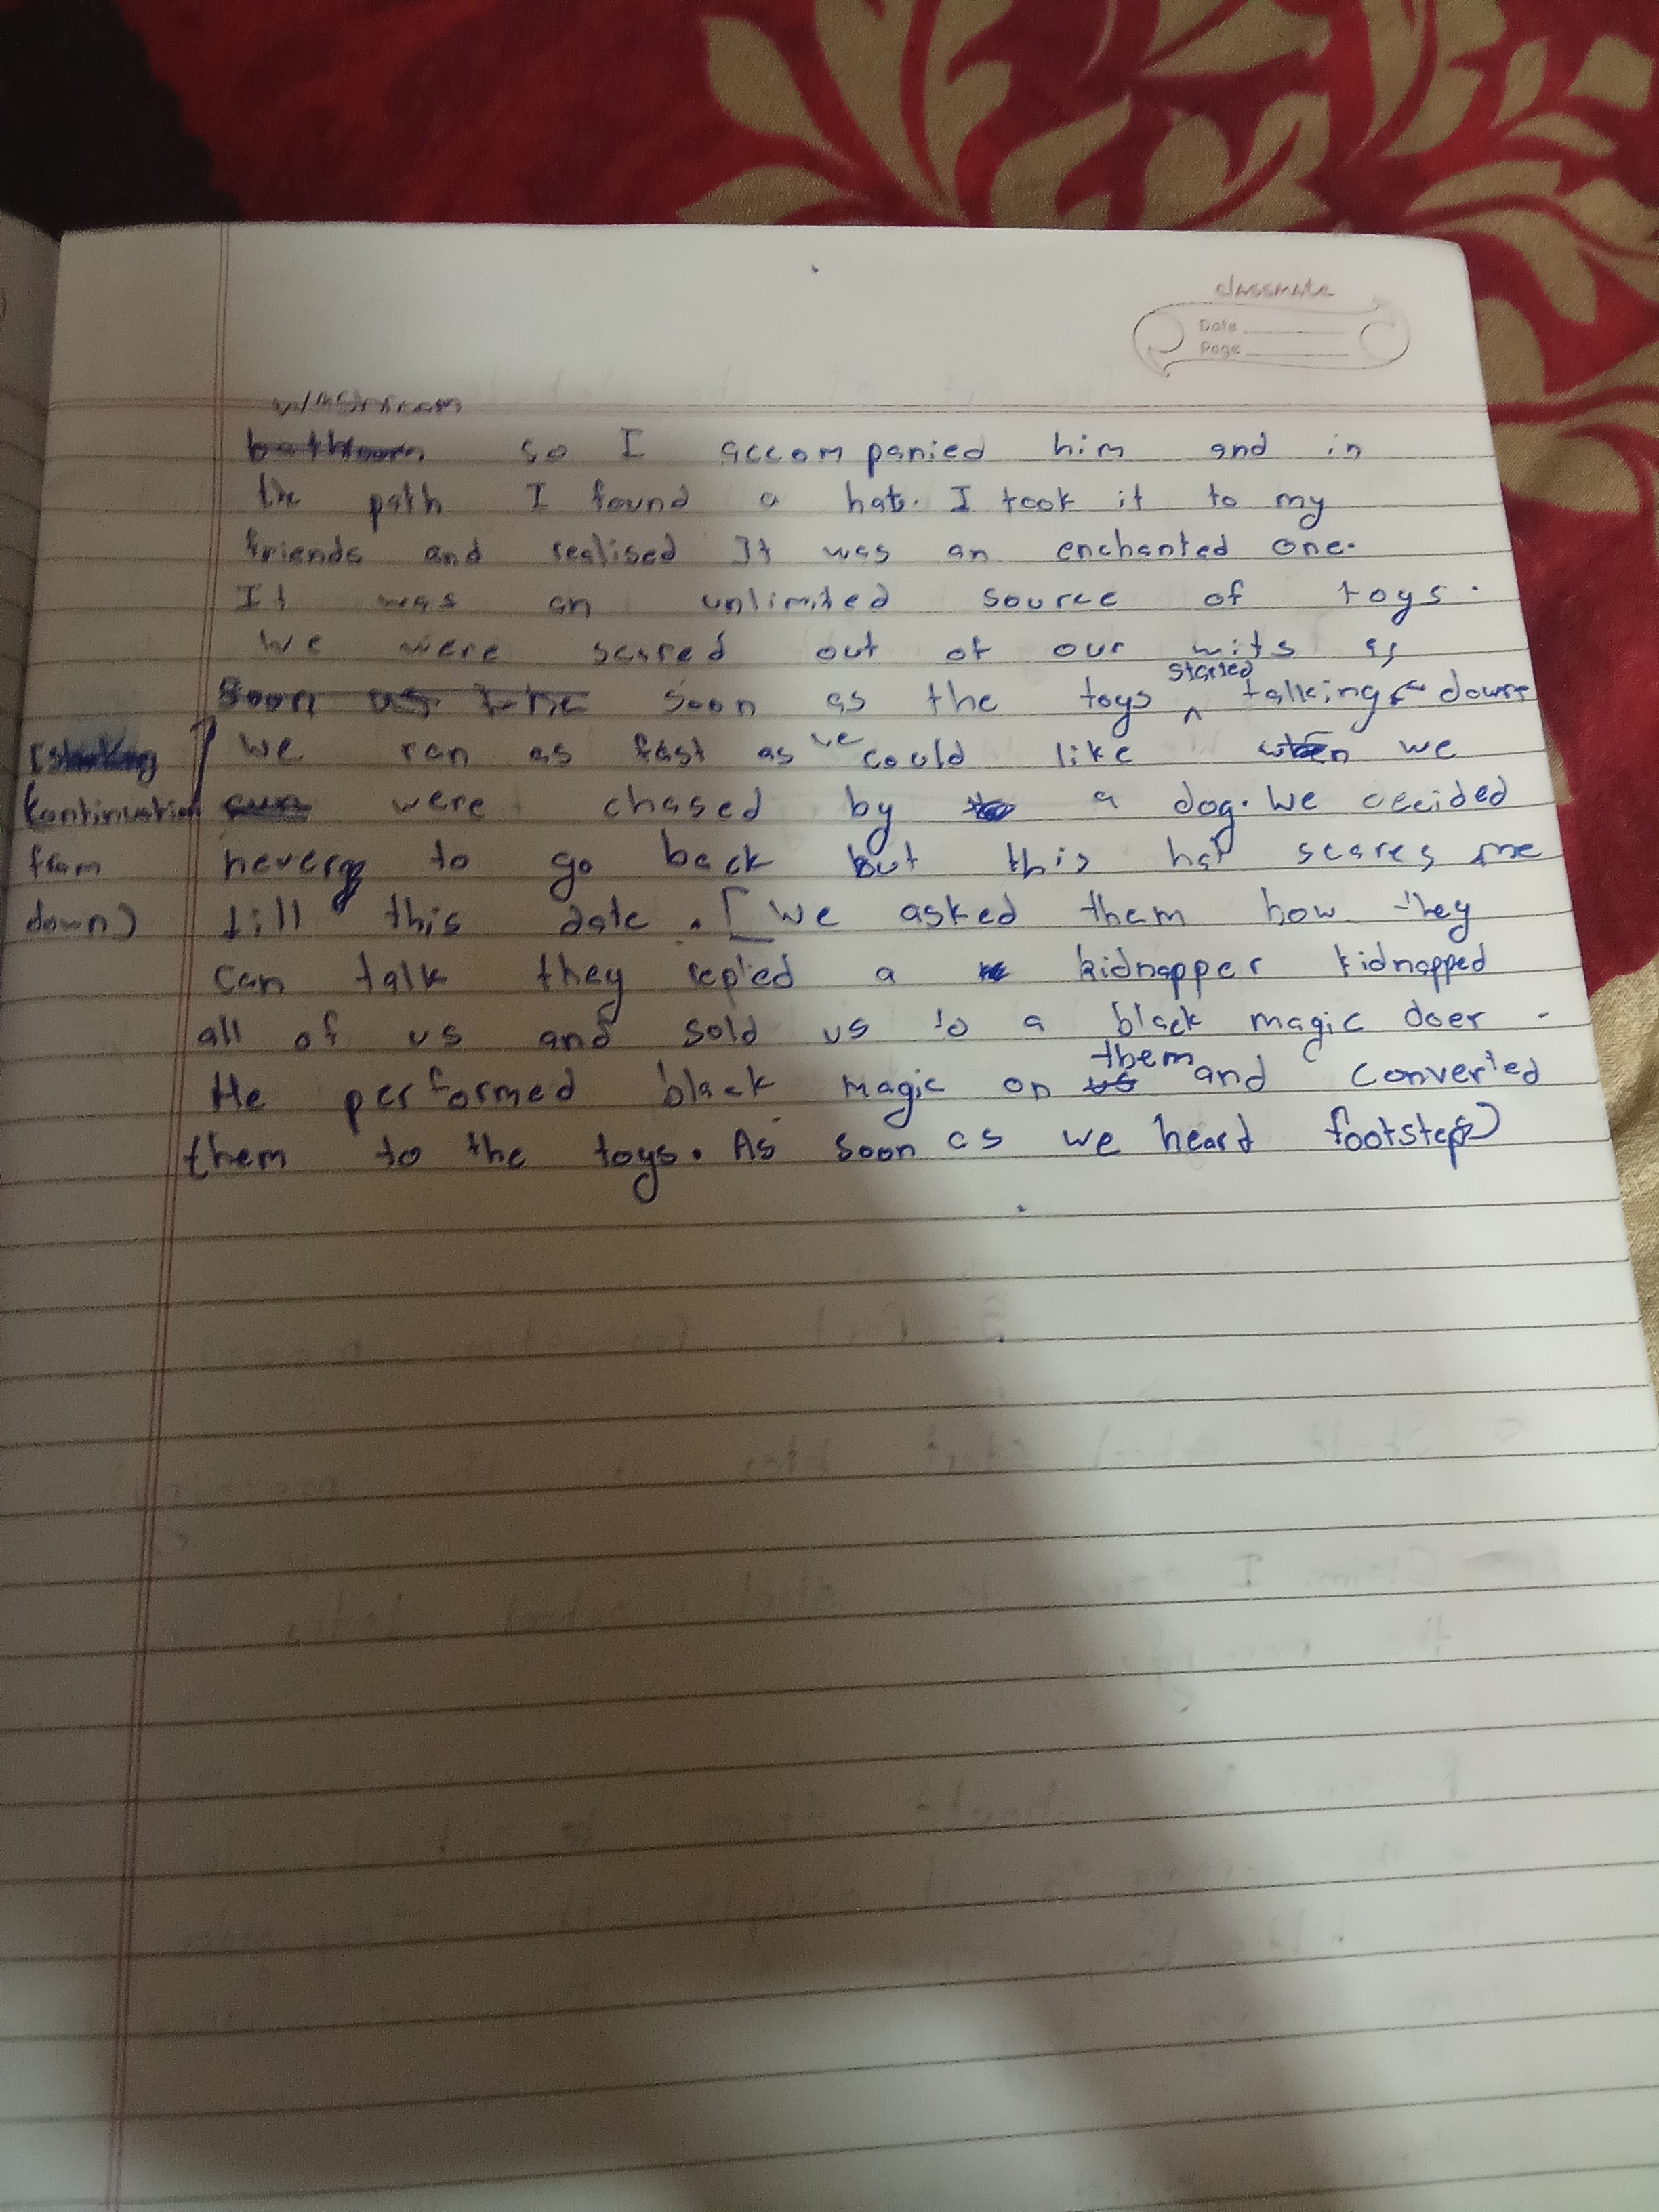 classmate
Date
Page
washroom
bathroom so I accompanied him and in
the path I found a hat. I took it to my
friends and realised It was an enchanted one.
It was an unlimited source of toys.
We were scared out of our wits as
soon as the soon as the toys started talking
(
continuation
from
down)
we ran as fast as we could like when we
were chased by a dog. We decided
never to go back but this hat scares me
till this date. [We asked them how they
can talk they replied a kidnapper kidnapped
all of us and sold us to a black magic doer.
He performed black magic on us them and converted
them to the toys. As soon as we heard footsteps)